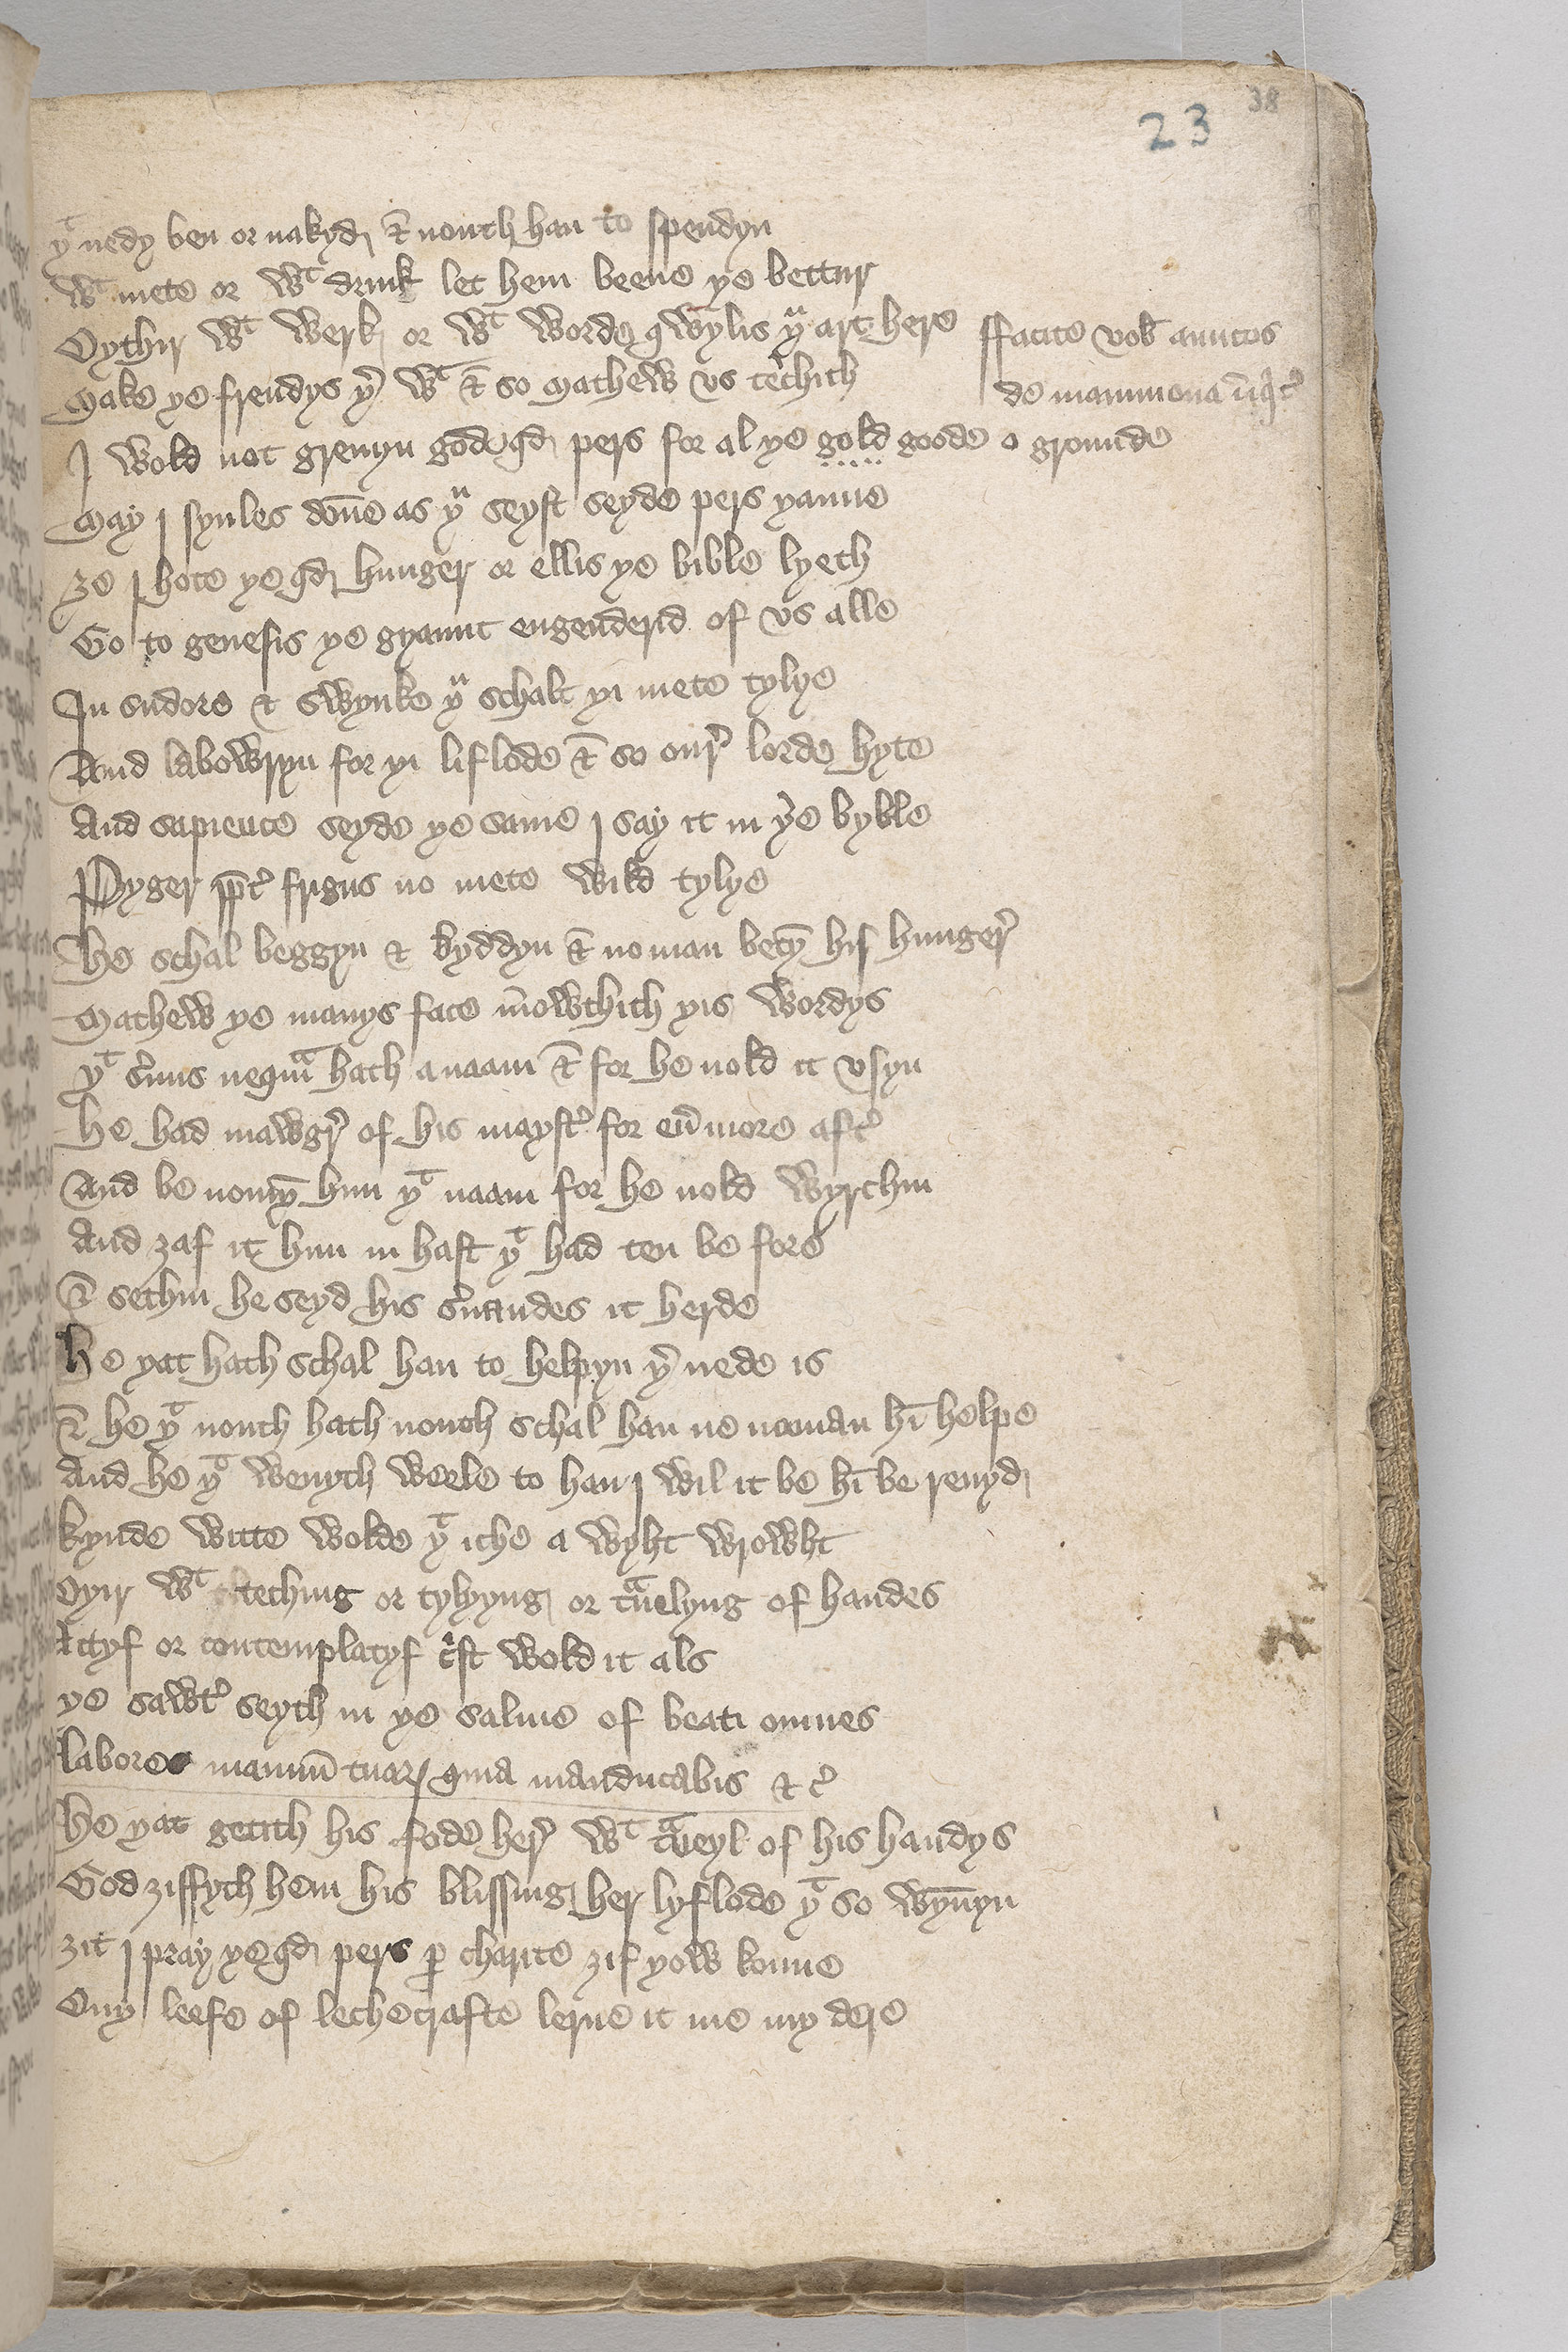 38
23
yͭ nedy ben or nakyd & nouth han to spendyn
wͭ mete or wͭ drink let hem beene ye bettur
Oythir wͭ werk or wͭ worde qwylis yͧ art here
ffacite vob̄ amicos
Make ye frendys yͬ wͭ & so Mathew vs techith
de mammona īiqͥtͨ
I wold not greuyn god qd pers for al ye gold goode o grounde
May j synles dōne as yͧ seyst seyde pers yanne
ze j hote ye qd hunger or ellis ye bible lyeth
Go to genesis ye gyaunt engenderid of vs alle
In sudore & swynke yͧ schalt yi mete tylye
And labowryn for yi liflode & so our̉ lorde hyte
And sapience seyde ye same j say it in ye byble
Pyger ꝓpt̉ frigus no mete wild tylye
He schal beggyn & byddyn & noman betȳ his hunger̉
Mathew ye manys face mowthith yis wordys
yͭ s̉uus neqͣm hath a naam & for he nold it vsyn
He had mawgr̉ of his mayst̉ for eủmore aft̉
And be nomȳ him yͭ naam for he nold wyrchin
And zaf it him in hast yͭ had ten be fore
& sethin he seyd his s̉uandes it herde
He yat hath schal han to helpyn yͬ nede is
& he yͭ nouth hath nouth schal han ne noman hī helpe
And he yͭ wenyth weele to han j wil it be hī be renyd
kynde witte wolde yͭ iche a wyht wrowht
Oyir wͭ teching or tylyyng or tͣuelyng of handes
Actyf or contemplatyf cͥst wold it als
ye sawt̉ seyth in ye salme of beati omnes
labores manuū tuaꝝ quia manducabis & c̉
He yat getith his fode her̉ wͭ tͣueyl of his handys
God ziffyth hem his blissing her lyflode yͭ so wyn̄yn
zit j pray ye qd pers ꝑ charite zif yow konne
Ony leefe of lechecrafte lerne it me my dere